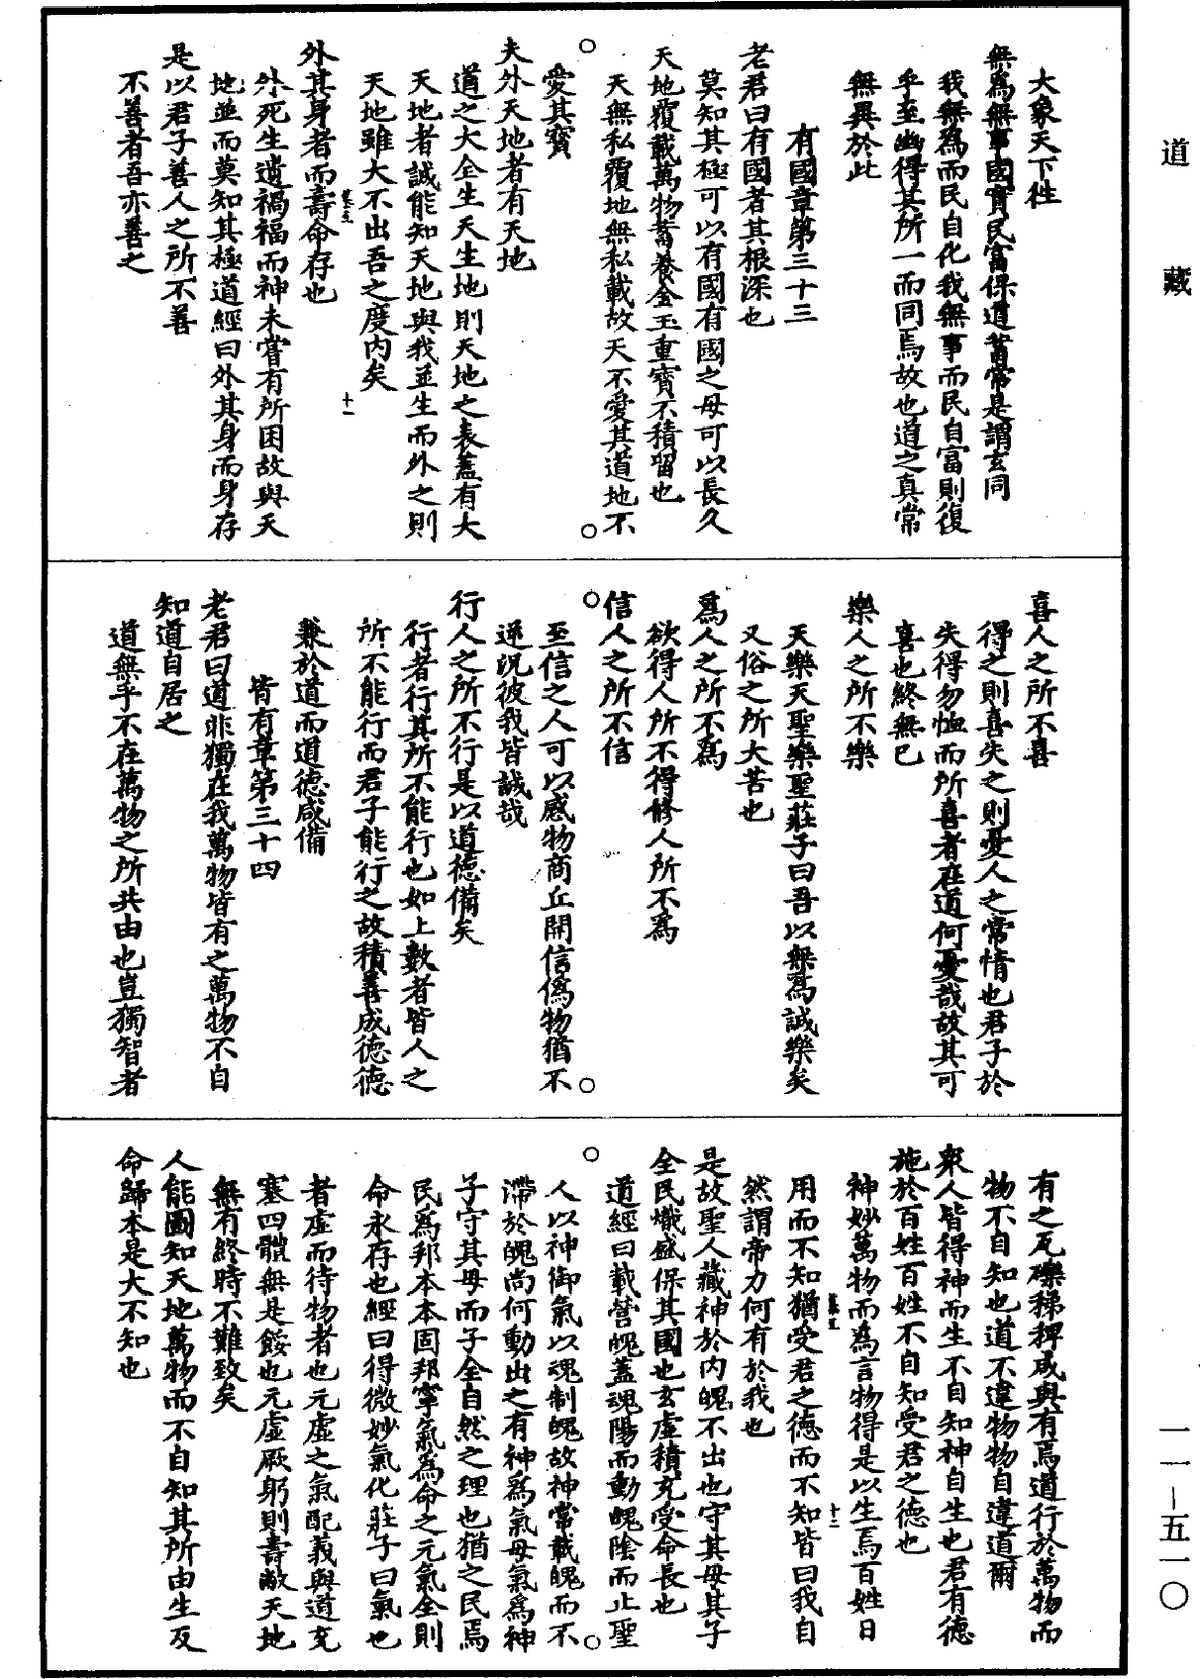 道藏
大象天下徃
無爲無事國實民富保道蓄常是謂玄同
我無爲而民自化我無事而民自富則復
乎至幽得其所一而同焉故也道之真常
無異於此
有國章第三十三
老君曰有國者其根深也
莫知其極可以有國有國之母可以長久
天地覆載萬物蓄養金玉重寶不積留也
天無私覆地無私載故天不愛其道地不
愛其寶
夫外天地者有天地
道之大全生天生地則天地之表蓋有大
天地者誠能知天地與我並生而外之則
天地雖大不出吾之度内矣
十一
外其身者而壽命存也
外死生遺禍福而神未嘗有所困故與天
地並而莫知其極道經曰外其身而身存
是以君子善人之所不善
不善者吾亦善之
喜人之所不喜
得之則喜失之則憂人之常情也君子於
失得勿恤而所喜者在道何憂哉故其可
喜也終無已
樂人之所不樂
天樂天聖樂聖莊子曰吾以無爲誠樂矣
又俗之所大苦也
爲人之所不爲
欲得人所不得修人所不爲
信人之所不信
至信之人可以感物商丘開信僞物猶不
逆況彼我皆誠哉
行人之所不行是以道德備矣
行者行其所不能行也如上數者皆人之
所不能行而君子能行之故積善成德德
兼於道而道德咸備
皆有章第三十四
老君曰道非獨在我萬物皆有之萬物不自
知道自居之
道無乎不在萬物之所共由也豈獨智者
有之瓦礫稊稗咸與有焉道行於萬物而
物不自知也道不違物物自違道爾
衆人皆得神而生不自知神自生也君有德
施於百姓百姓不自知受君之德也
神妙萬物而爲言物得是以生焉百姓日
十二
用而不知猶受君之德而不知皆曰我自
然謂帝力何有於我也
是故聖人藏神於内魄不出也守其母其子
全民熾盛保其國也玄虚積充受命長也
道經曰載營魄蓋魂陽而動魄陰而止聖
人以神御氣以魂制魄故神常載魄而不
滯於魄尚何動出之有神爲氣母氣爲神
子守其母而子全自然之理也猶之民焉
民爲邦本本固邦寧氣爲命之元氣全則
命永存也經曰得微妙氣化莊子曰氣也
者虚而待物者也元虚之氣配義與道充
塞四體無是餒也元虚厥躬則壽敝天地
無有終時不難致矣
人能圖知天地萬物而不自知其所由生反
命歸本是大不知也
一一－五一〇